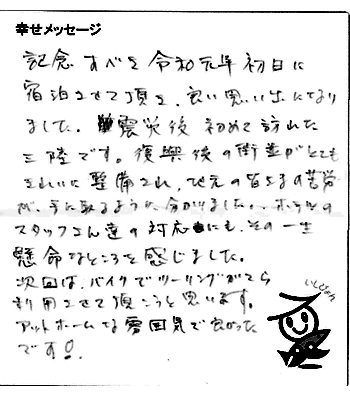 幸せメッセージ
記念すべき令和元年初日に
宿泊させて頂き、良い思い出になり
ました。震災後初めて訪れた
三陸です。復興後の街並がとても
きれいに整備され、地元の皆さまの苦労
が、手に取るように分かりました。ホテルの
スタッフさん達の対応にも、その一生
懸命なところを感じました。
次回は、バイクでツーリングがてら
利用させて頂こうと思います。
アットホームな雰囲気で良かった
です!